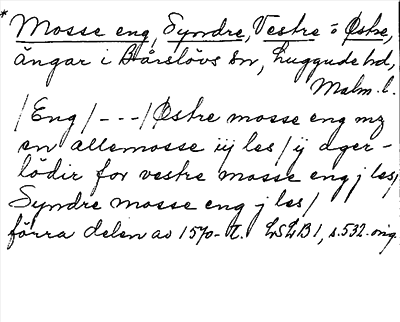 * Mosse eng, Syndre, Vestre o Østre,
ängar i Bårslövs sn, Luggude hd,
Malm. l.
/Eng/---/Østre mosse eng mz
en allemosse iij les/ij ager-
lödir for vestre mosse eng j les/
Syndre mosse eng j les/
förra delen av 1570-t. LSLB 1, s. 532. orig.